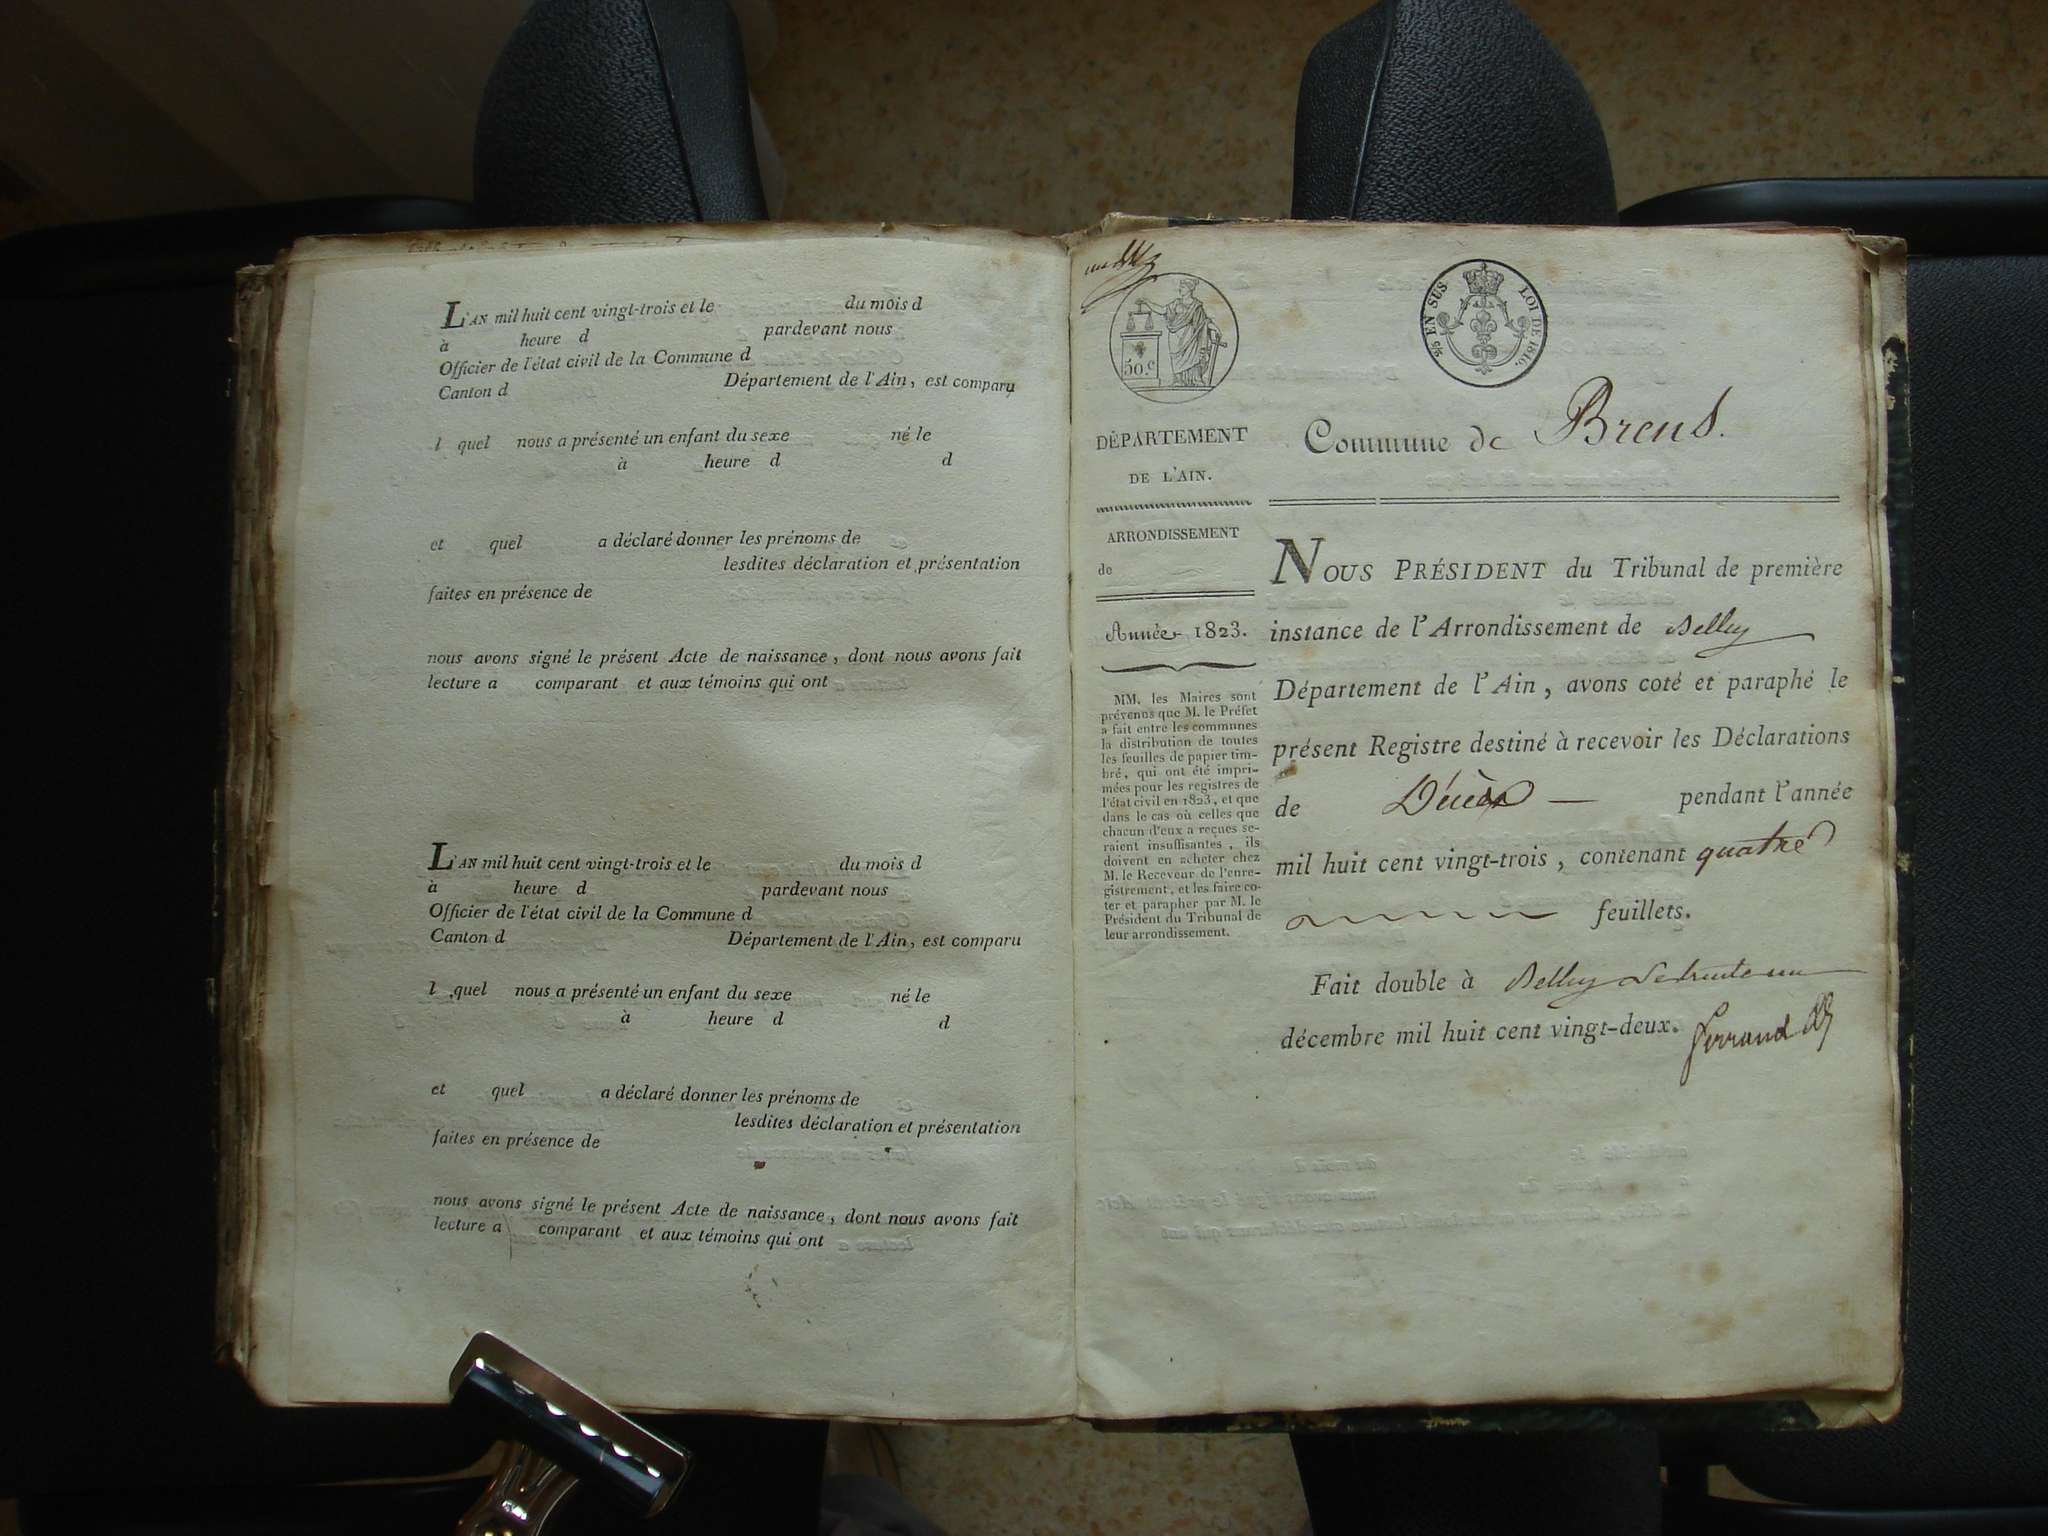 L'AN mil huit cent vingt-trois et le du mois d
à heure d pardevant nous
Officier de l'état civil de la Commune d
Canton d Département de l'Ain, est comparu
l quel nous a présenté un enfant du sexe né le
à heure d d
et quel a déclaré donner les prénoms de
lesdites déclaration et présentation
faites en présence de
nous avons signé le présent Acte de naissance, dont nous avons fait
lecture a comparant et aux témoins qui ont
L'AN mil huit cent vingt-trois et le du mois d
à heure d pardevant nous
Officier de l'état civil de la Commune d
Canton d Département de l'Ain, est comparu
l quel nous a présenté un enfant du sexe né le
à heure d d
et quel a déclaré donner les prénoms de
lesdites déclaration et présentation
faites en présence de
nous avons signé le présent Acte de naissance, dont nous avons fait
lecture a comparant et aux témoins qui ont
50.c
2/5 EN SUS LOI DE 1816.
DÉPARTEMENT
DE L'AIN.
ARRONDISSEMENT
de
Année 1823.
MM. les Maires sont
prévenus que M. le Préfet
a fait entre les communes
la distribution de toutes
les feuilles de papier tim-
bré, qui ont été impri-
mées pour les registres de
l'état civil en 1823, et que
dans le cas où celles que
chacun d'eux a reçues se-
raient insuffisantes, ils
doivent en acheter chez
M. le Receveur de l'enre-
gistrement, et les faire co-
ter et parapher par M. le
Président du Tribunal de
leur arrondissement.
Commune de Brens.
NOUS PRÉSIDENT du Tribunal de première
instance de l'Arrondissement de Belley
Département de l'Ain, avons coté et paraphé le
présent Registre destiné à recevoir les Déclarations
de Décès — pendant l'année
mil huit cent vingt-trois, contenant quatre
feuillets.
Fait double à Belley le trente un
décembre mil huit cent vingt-deux. Ferrand